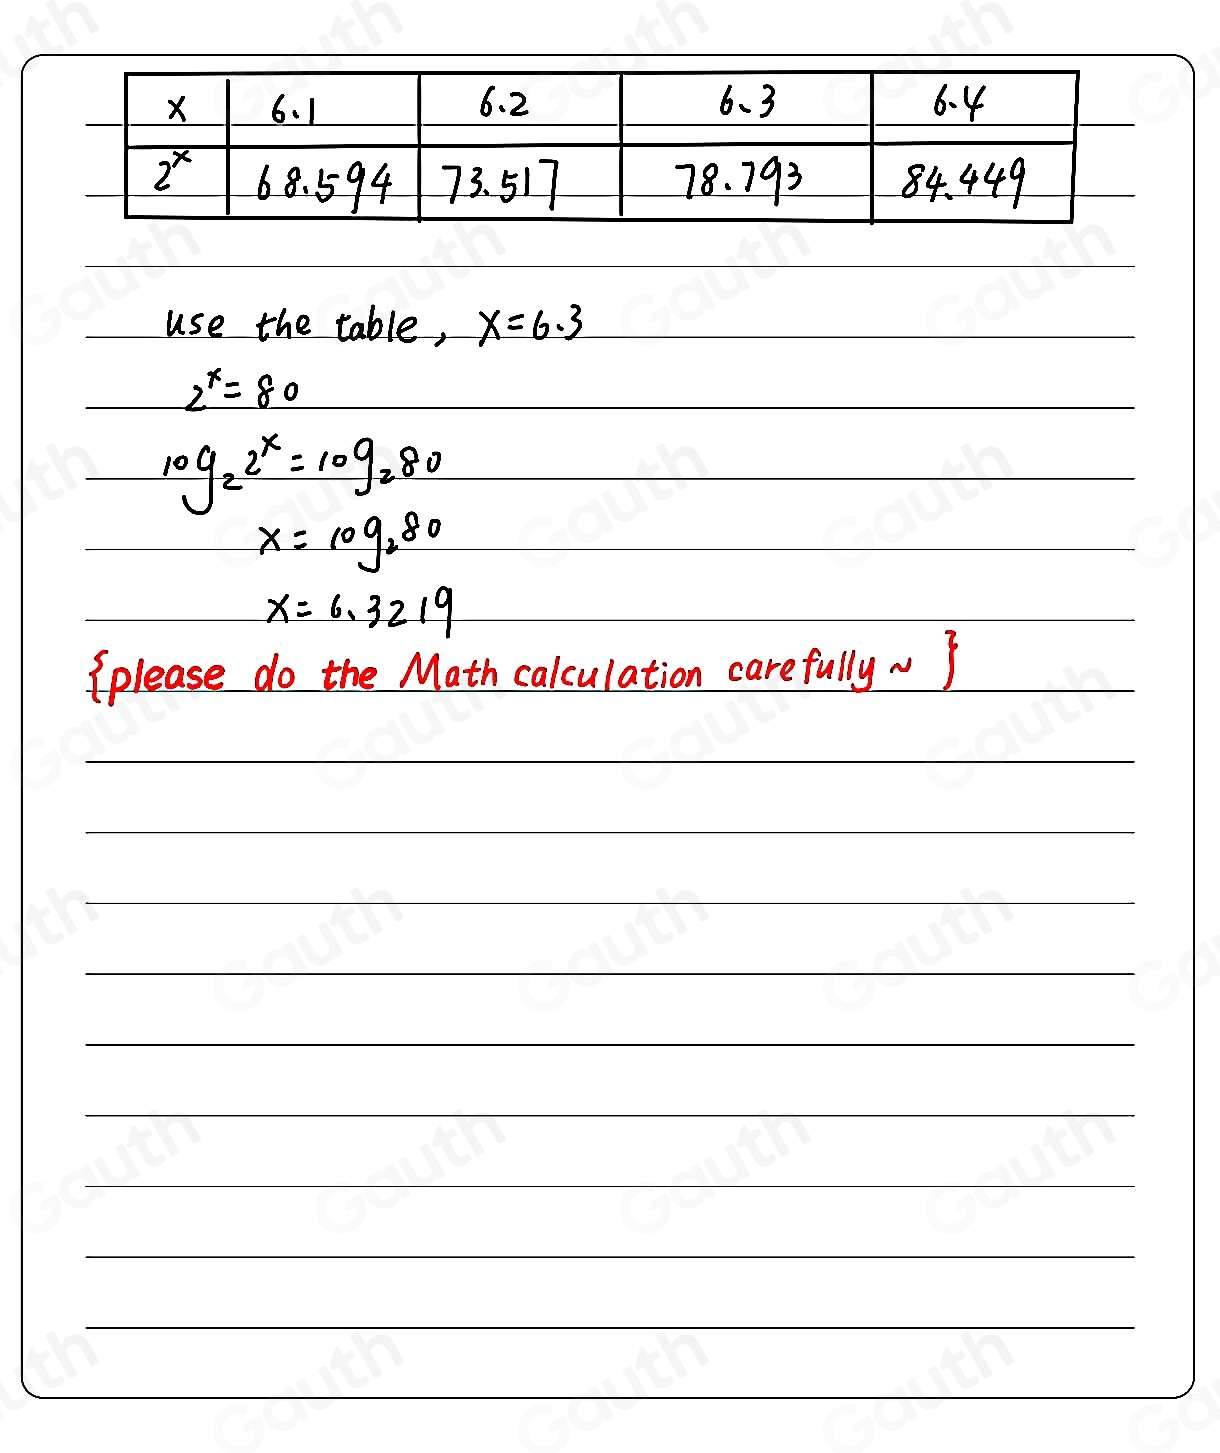 x 6.1 6.2 6.3 6.4
2^x 68.594 73.517 78.793 84.449
use the table, x=6.3
2^x = 80
log₂2^x = log₂80
x = log₂80
x = 6.3219
{please do the Math calculation carefully ~ }
Gauth